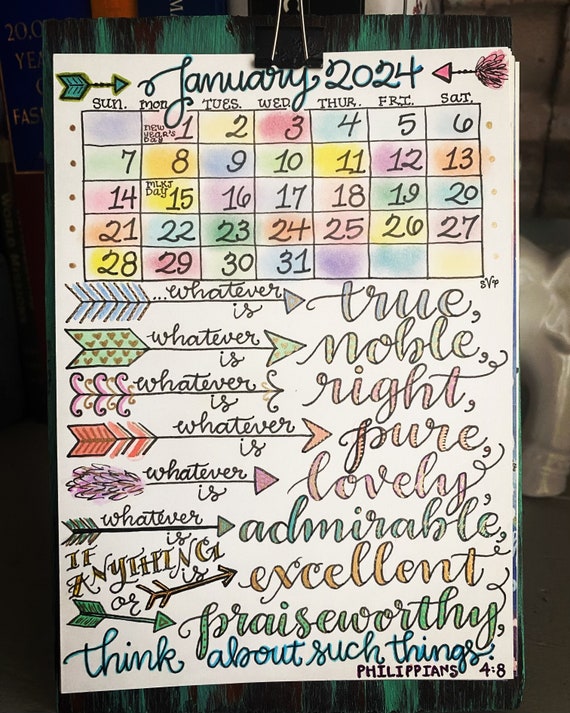 January 2024
SUN. mon. TUES. WED. THUR. FRI. SAT.
new year's Day 1 2 3 4 5 6
7 8 9 10 11 12 13
14 MLKJ Day 15 16 17 18 19 20
21 22 23 24 25 26 27
28 29 30 31
SVP
...whatever is true,
whatever is noble,
whatever is right,
whatever is pure,
whatever is lovely,
whatever is admirable,
IF ANYTHING is excellent
or praiseworthy,
think about such things.
PHILIPPIANS 4:8
20,0
YEA
O
FASH
World